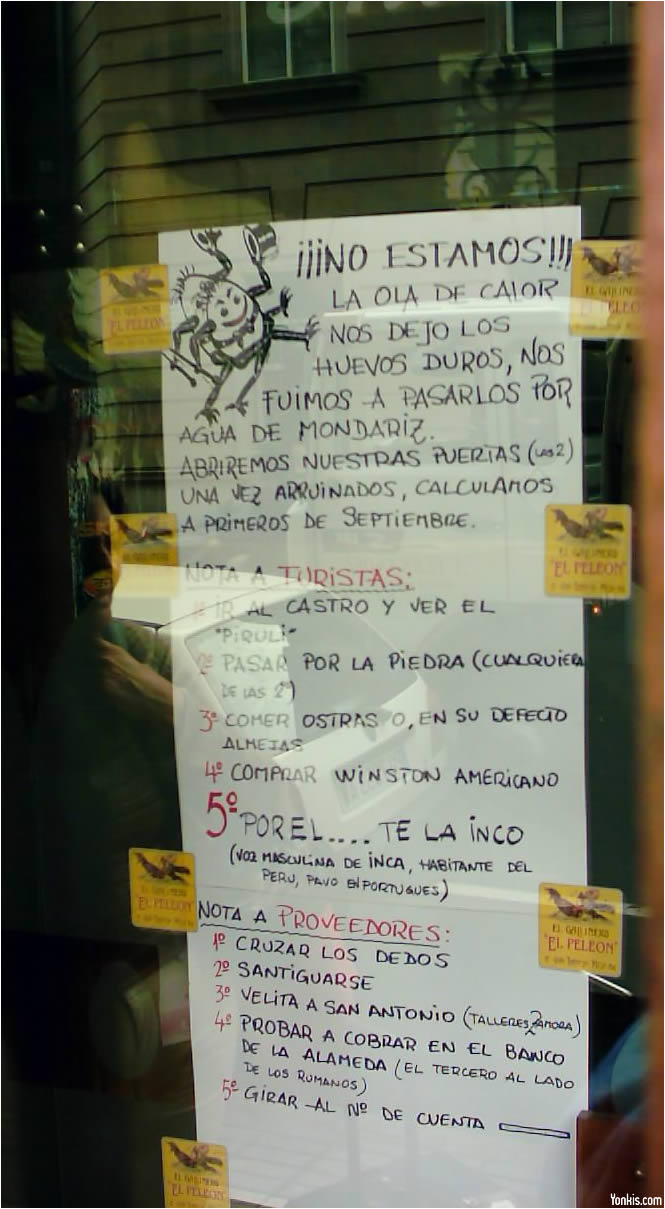 ¡¡¡NO ESTAMOS!!!
LA OLA DE CALOR
NOS DEJO LOS
HUEVOS DUROS, NOS
FUIMOS A PASARLOS POR
AGUA DE MONDARIZ.
ABRIREMOS NUESTRAS PUERTAS (LAS 2)
UNA VEZ ARRUINADOS, CALCULAMOS
A PRIMEROS DE SEPTIEMBRE.
NOTA A TURISTAS:
1º IR AL CASTRO Y VER EL
"PIRULI"
2º PASAR POR LA PIEDRA (CUALQUIERA
DE LAS 2)
3º COMER OSTRAS O, EN SU DEFECTO
ALMEJAS
4º COMPRAR WINSTON AMERICANO
5º POR EL.... TE LA INCO
(VOZ MASCULINA DE INCA, HABITANTE DEL
PERU, PAVO EN PORTUGUES)
NOTA A PROVEEDORES:
1º CRUZAR LOS DEDOS
2º SANTIGUARSE
3º VELITA A SAN ANTONIO (TALLERES ZAMORA)
4º PROBAR A COBRAR EN EL BANCO
DE LA ALAMEDA (EL TERCERO AL LADO
DE LOS RUMANOS)
5º GIRAR AL Nº DE CUENTA
EL GALLINERO
"EL PELEON"
EL GALLINERO
EL PELEON
EL GALLINERO
"EL PELEON"
EL GALLINERO
"EL PELEON"
EL GALLINERO
"EL PELEON"
EL GALLINERO
"EL PELEON"
Yonkis.com